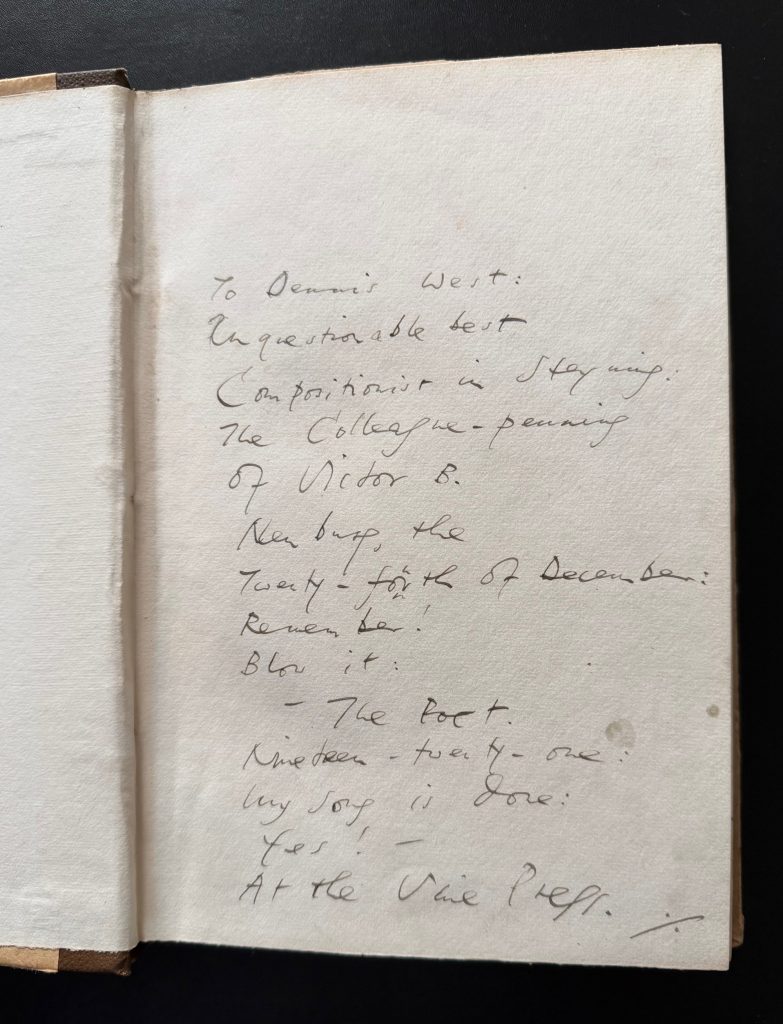 To Dennis West:
Unquestionable best
Compositionist in Steyning:
The Colleague-penning
Of Victor B.
Neuburg, the
Twenty-forth of December:
Remember!
Blow it:
- The Poet.
Nineteen-twenty-one:
My song is done:
Yes! -
At the Vine Press.